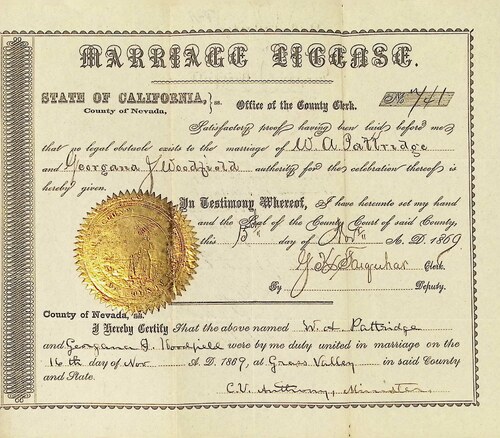 MARRIAGE LICENSE.
STATE OF CALIFORNIA, } ss. Office of the County Clerk. No. 741
County of Nevada,
Satisfactory proof having been laid before me
that no legal obstacle exists to the marriage of W. A. Pattridge
and Georgana J Woodfield authority for the celebration thereof is
hereby given.
In Testimony Whereof, I have hereunto set my hand
and the Seal of the County Court of said County,
this 15th day of Nov. A. D. 1869
Farquhar Clerk.
By Deputy.
County of Nevada, ss.
I Hereby Certify That the above named W. A. Pattridge
and Georgana J. Woodfield were by me duty united in marriage on the
16th day of Nov A. D. 1869, at Grass Valley in said County
and State.
C. V. Anthony, Minister.